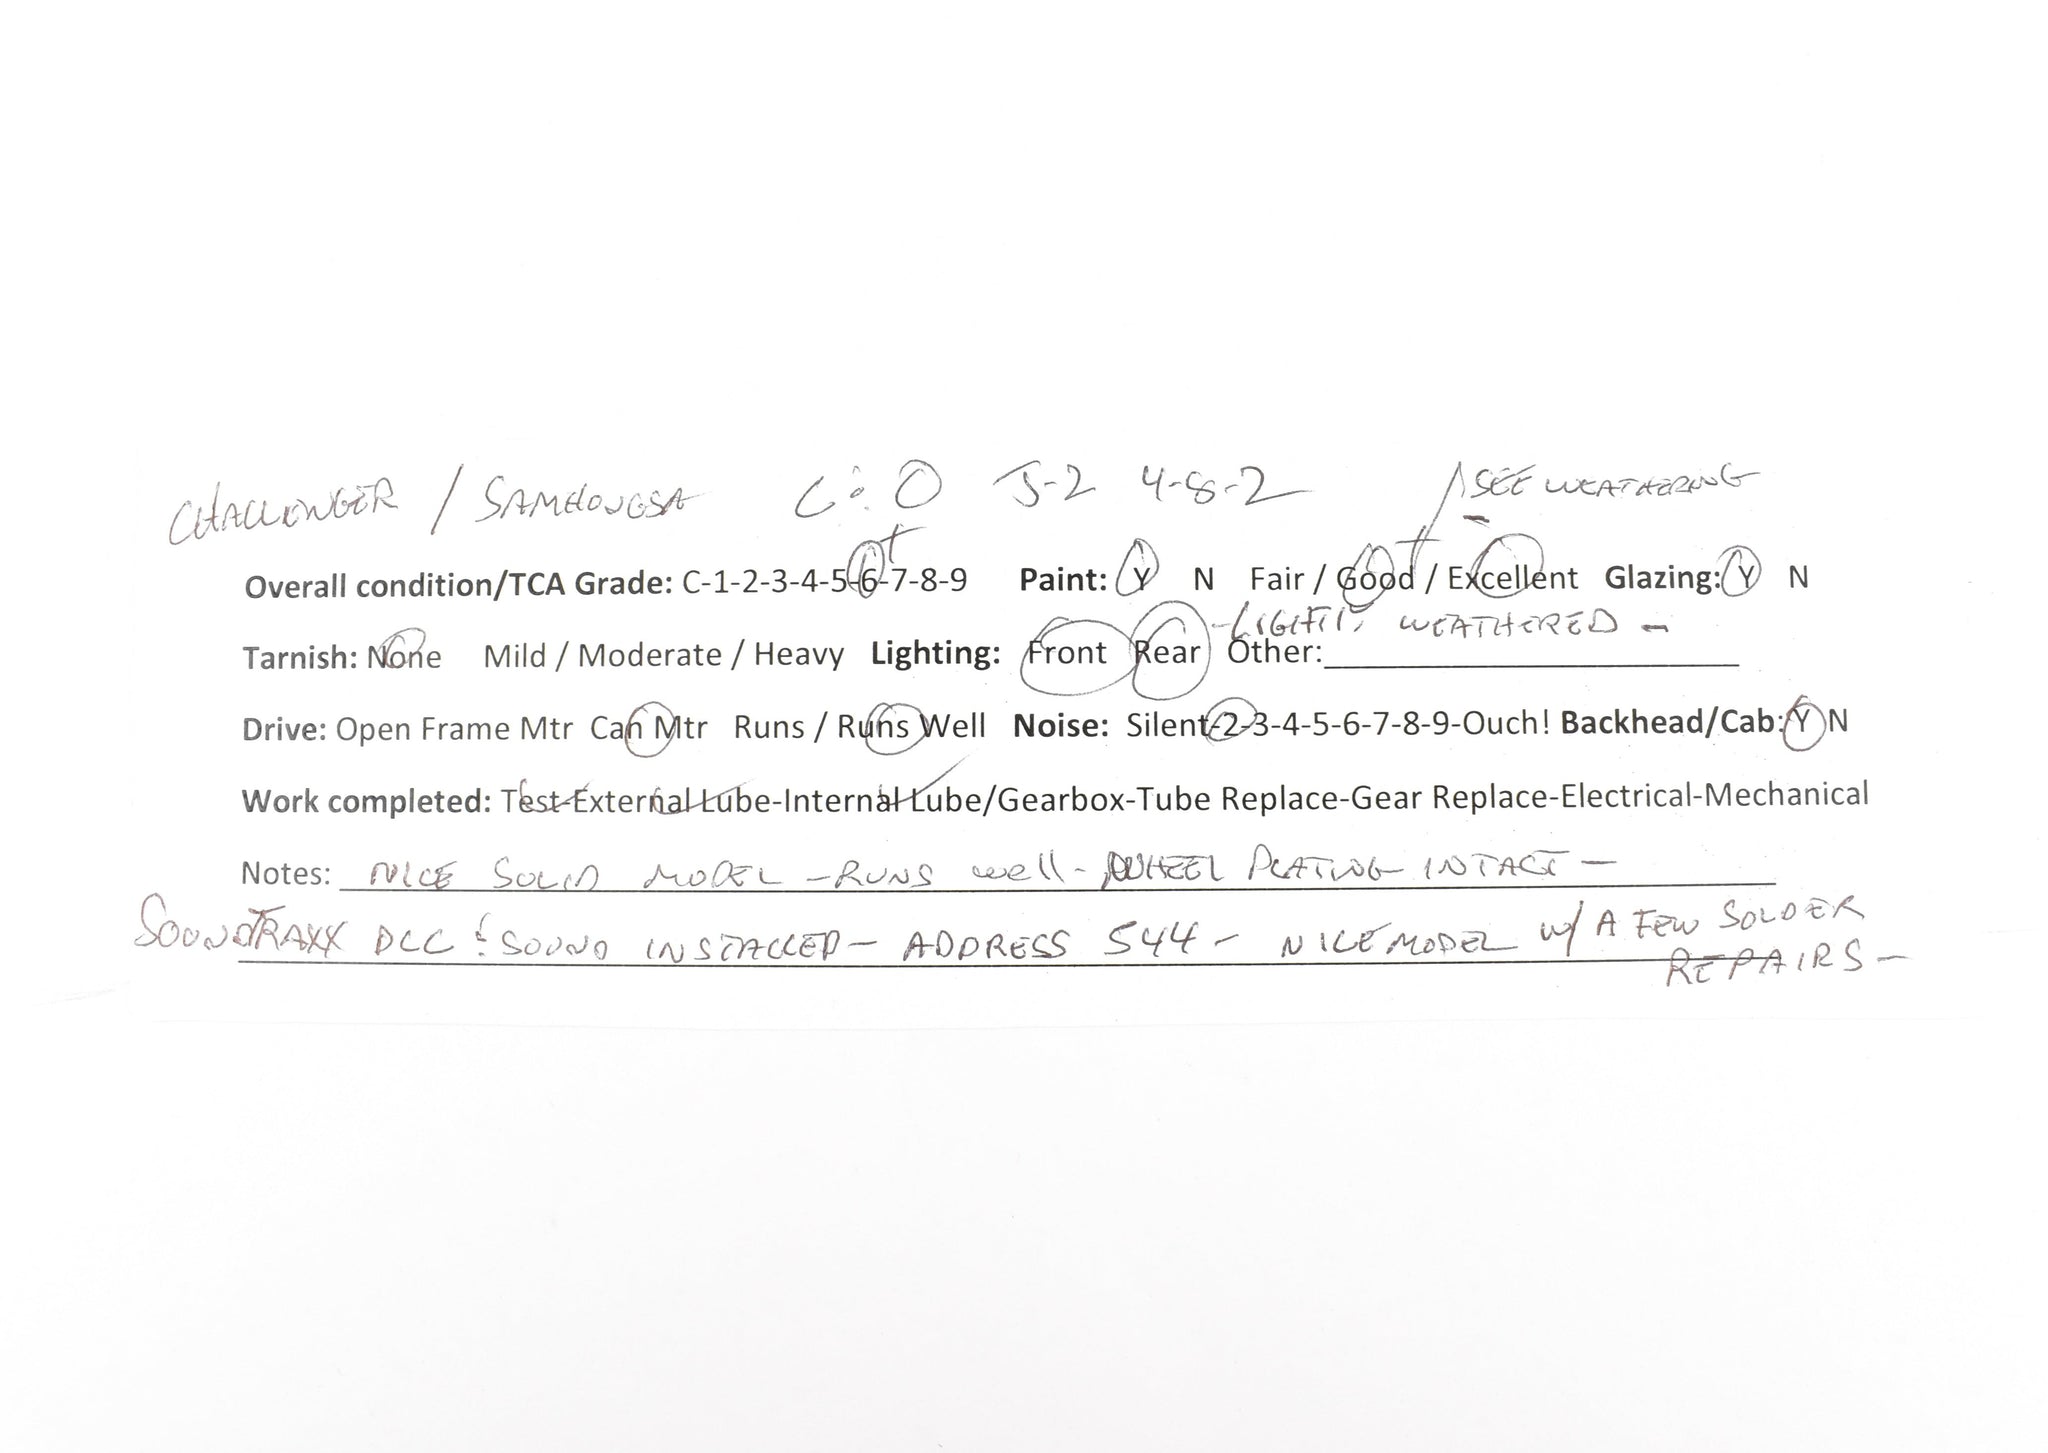 CHALLENGER / SAMHONGSA C&O J-2 4-8-2 / SEE WEATHERING
Overall condition/TCA Grade: C-1-2-3-4-5-6-7-8-9 + Paint: Y N Fair / Good + / Excellent Glazing: Y N
- LIGHTLY WEATHERED -
Tarnish: None Mild / Moderate / Heavy Lighting: Front Rear Other:
Drive: Open Frame Mtr Can Mtr Runs / Runs Well Noise: Silent-2-3-4-5-6-7-8-9-Ouch! Backhead/Cab: Y N
Work completed: Test-External Lube-Internal Lube/Gearbox-Tube Replace-Gear Replace-Electrical-Mechanical
Notes: NICE SOLID MODEL - RUNS well - WHEEL PLATING INTACT -
SOUNDTRAXX DCC & SOUND INSTALLED - ADDRESS 544 - NICE MODEL W/ A FEW SOLDER
REPAIRS -